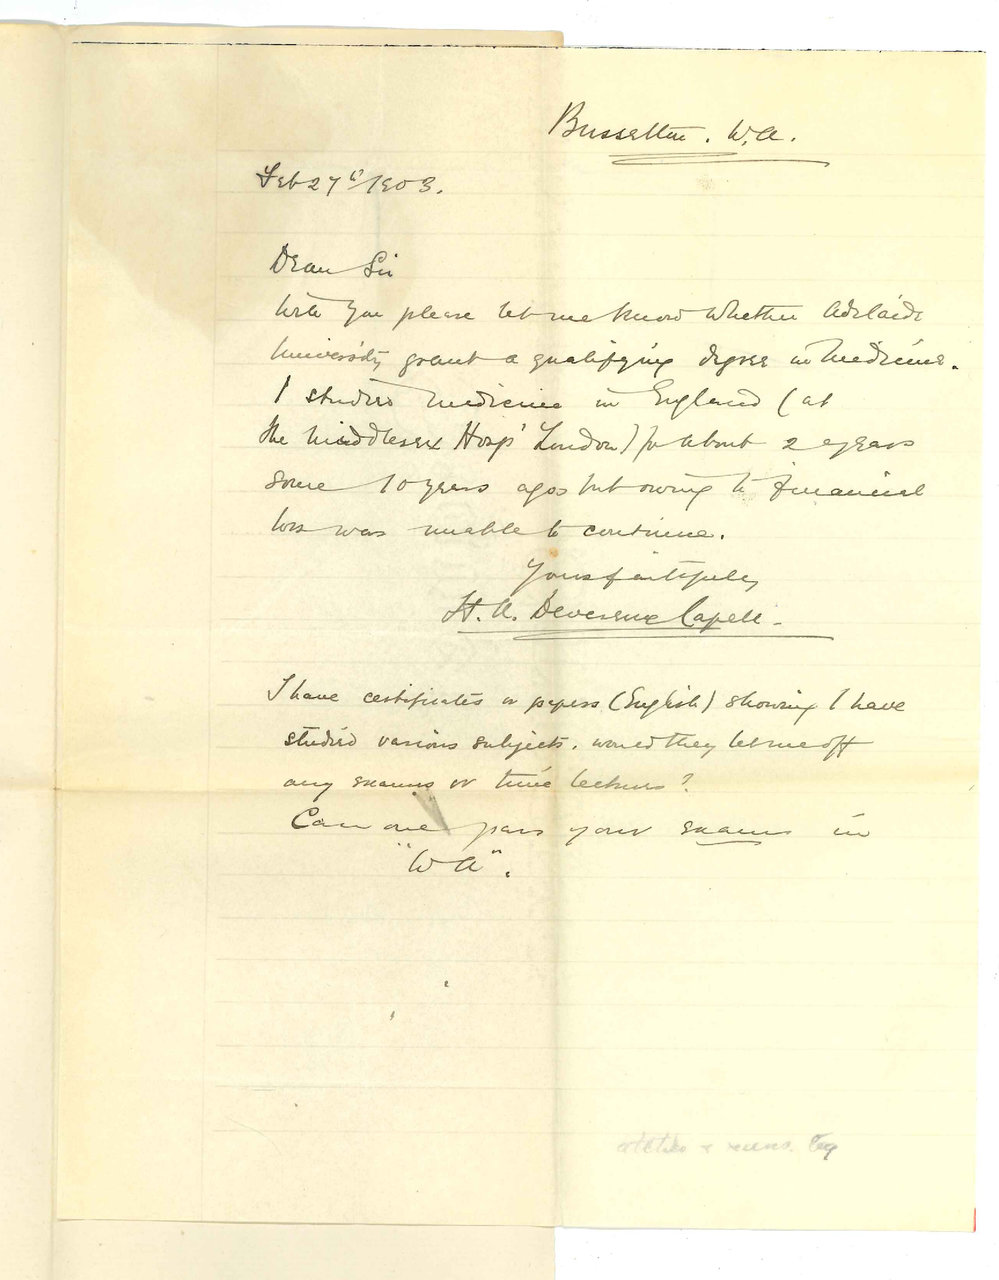 Busselton. W.A.
Feb 27th/1903.
Dear Sir
Will you please let me know whether Adelaide
University grant a qualifying degree in Medicine.
I studied medicine in England (at
the Middlesex Hosp' London) for about 2 years
some 10 years ago but owing to financial
loss was unable to continue.
Yours faithfully
H. A. Devereux Capell.
I have certificates or papers (English) showing I have
studied various subjects. would they let me off
any exams or time lectures?
Can one pass your exams in
"WA".